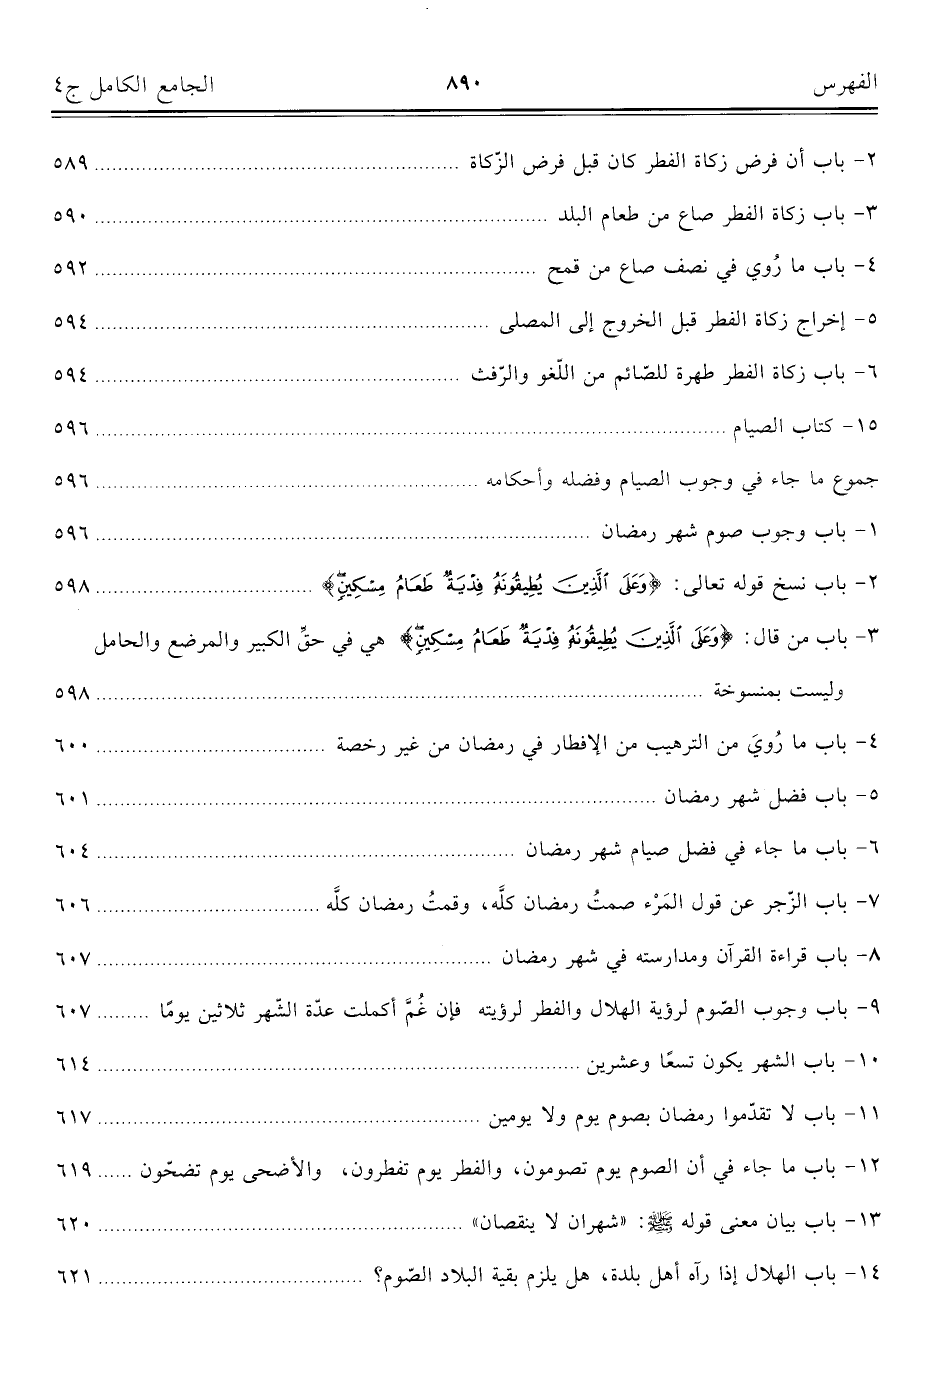 الفهرس ٨٩٠ الجامع الكامل ج٤
٢- باب أن فرض زكاة الفطر كان قبل فرض الزّكاة ........ ٥٨٩
٣- باب زكاة الفطر صاع من طعام البلد ........ ٥٩٠
٤- باب ما رُوي في نصف صاع من قمح ........ ٥٩٢
٥- إخراج زكاة الفطر قبل الخروج إلى المصلى ........ ٥٩٤
٦- باب زكاة الفطر طهرة للصّائم من اللّغو والرّفث ........ ٥٩٤
١٥- كتاب الصيام ........ ٥٩٦
جموع ما جاء في وجوب الصيام وفضله وأحكامه ........ ٥٩٦
١- باب وجوب صوم شهر رمضان ........ ٥٩٦
٢- باب نسخ قوله تعالى: ﴿وَعَلَى ٱلَّذِينَ يُطِيقُونَهُۥ فِدْيَةٌ طَعَامُ مِسْكِينٍۖ﴾ ........ ٥٩٨
٣- باب من قال: ﴿وَعَلَى ٱلَّذِينَ يُطِيقُونَهُۥ فِدْيَةٌ طَعَامُ مِسْكِينٍۖ﴾ هي في حقِّ الكبير والمرضع والحامل
وليست بمنسوخة ........ ٥٩٨
٤- باب ما رُويَ من الترهيب من الإفطار في رمضان من غير رخصة ........ ٦٠٠
٥- باب فضل شهر رمضان ........ ٦٠١
٦- باب ما جاء في فضل صيام شهر رمضان ........ ٦٠٤
٧- باب الزّجر عن قول المَرْء صمتُ رمضان كلَّه، وقمتُ رمضان كلَّه ........ ٦٠٦
٨- باب قراءة القرآن ومدارسته في شهر رمضان ........ ٦٠٧
٩- باب وجوب الصّوم لرؤية الهلال والفطر لرؤيته فإن غُمَّ أكملت عدّة الشّهر ثلاثين يومًا ........ ٦٠٧
١٠- باب الشهر يكون تسعًا وعشرين ........ ٦١٤
١١- باب لا تقدّموا رمضان بصوم يوم ولا يومين ........ ٦١٧
١٢- باب ما جاء في أن الصوم يوم تصومون، والفطر يوم تفطرون، والأضحى يوم تضحّون ...... ٦١٩
١٣- باب بيان معنى قوله ﷺ: «شهران لا ينقصان» ........ ٦٢٠
١٤- باب الهلال إذا رآه أهل بلدة، هل يلزم بقية البلاد الصّوم؟ ........ ٦٢١